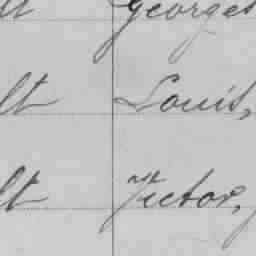 lt Georges
lt Louis,
lt Victor,